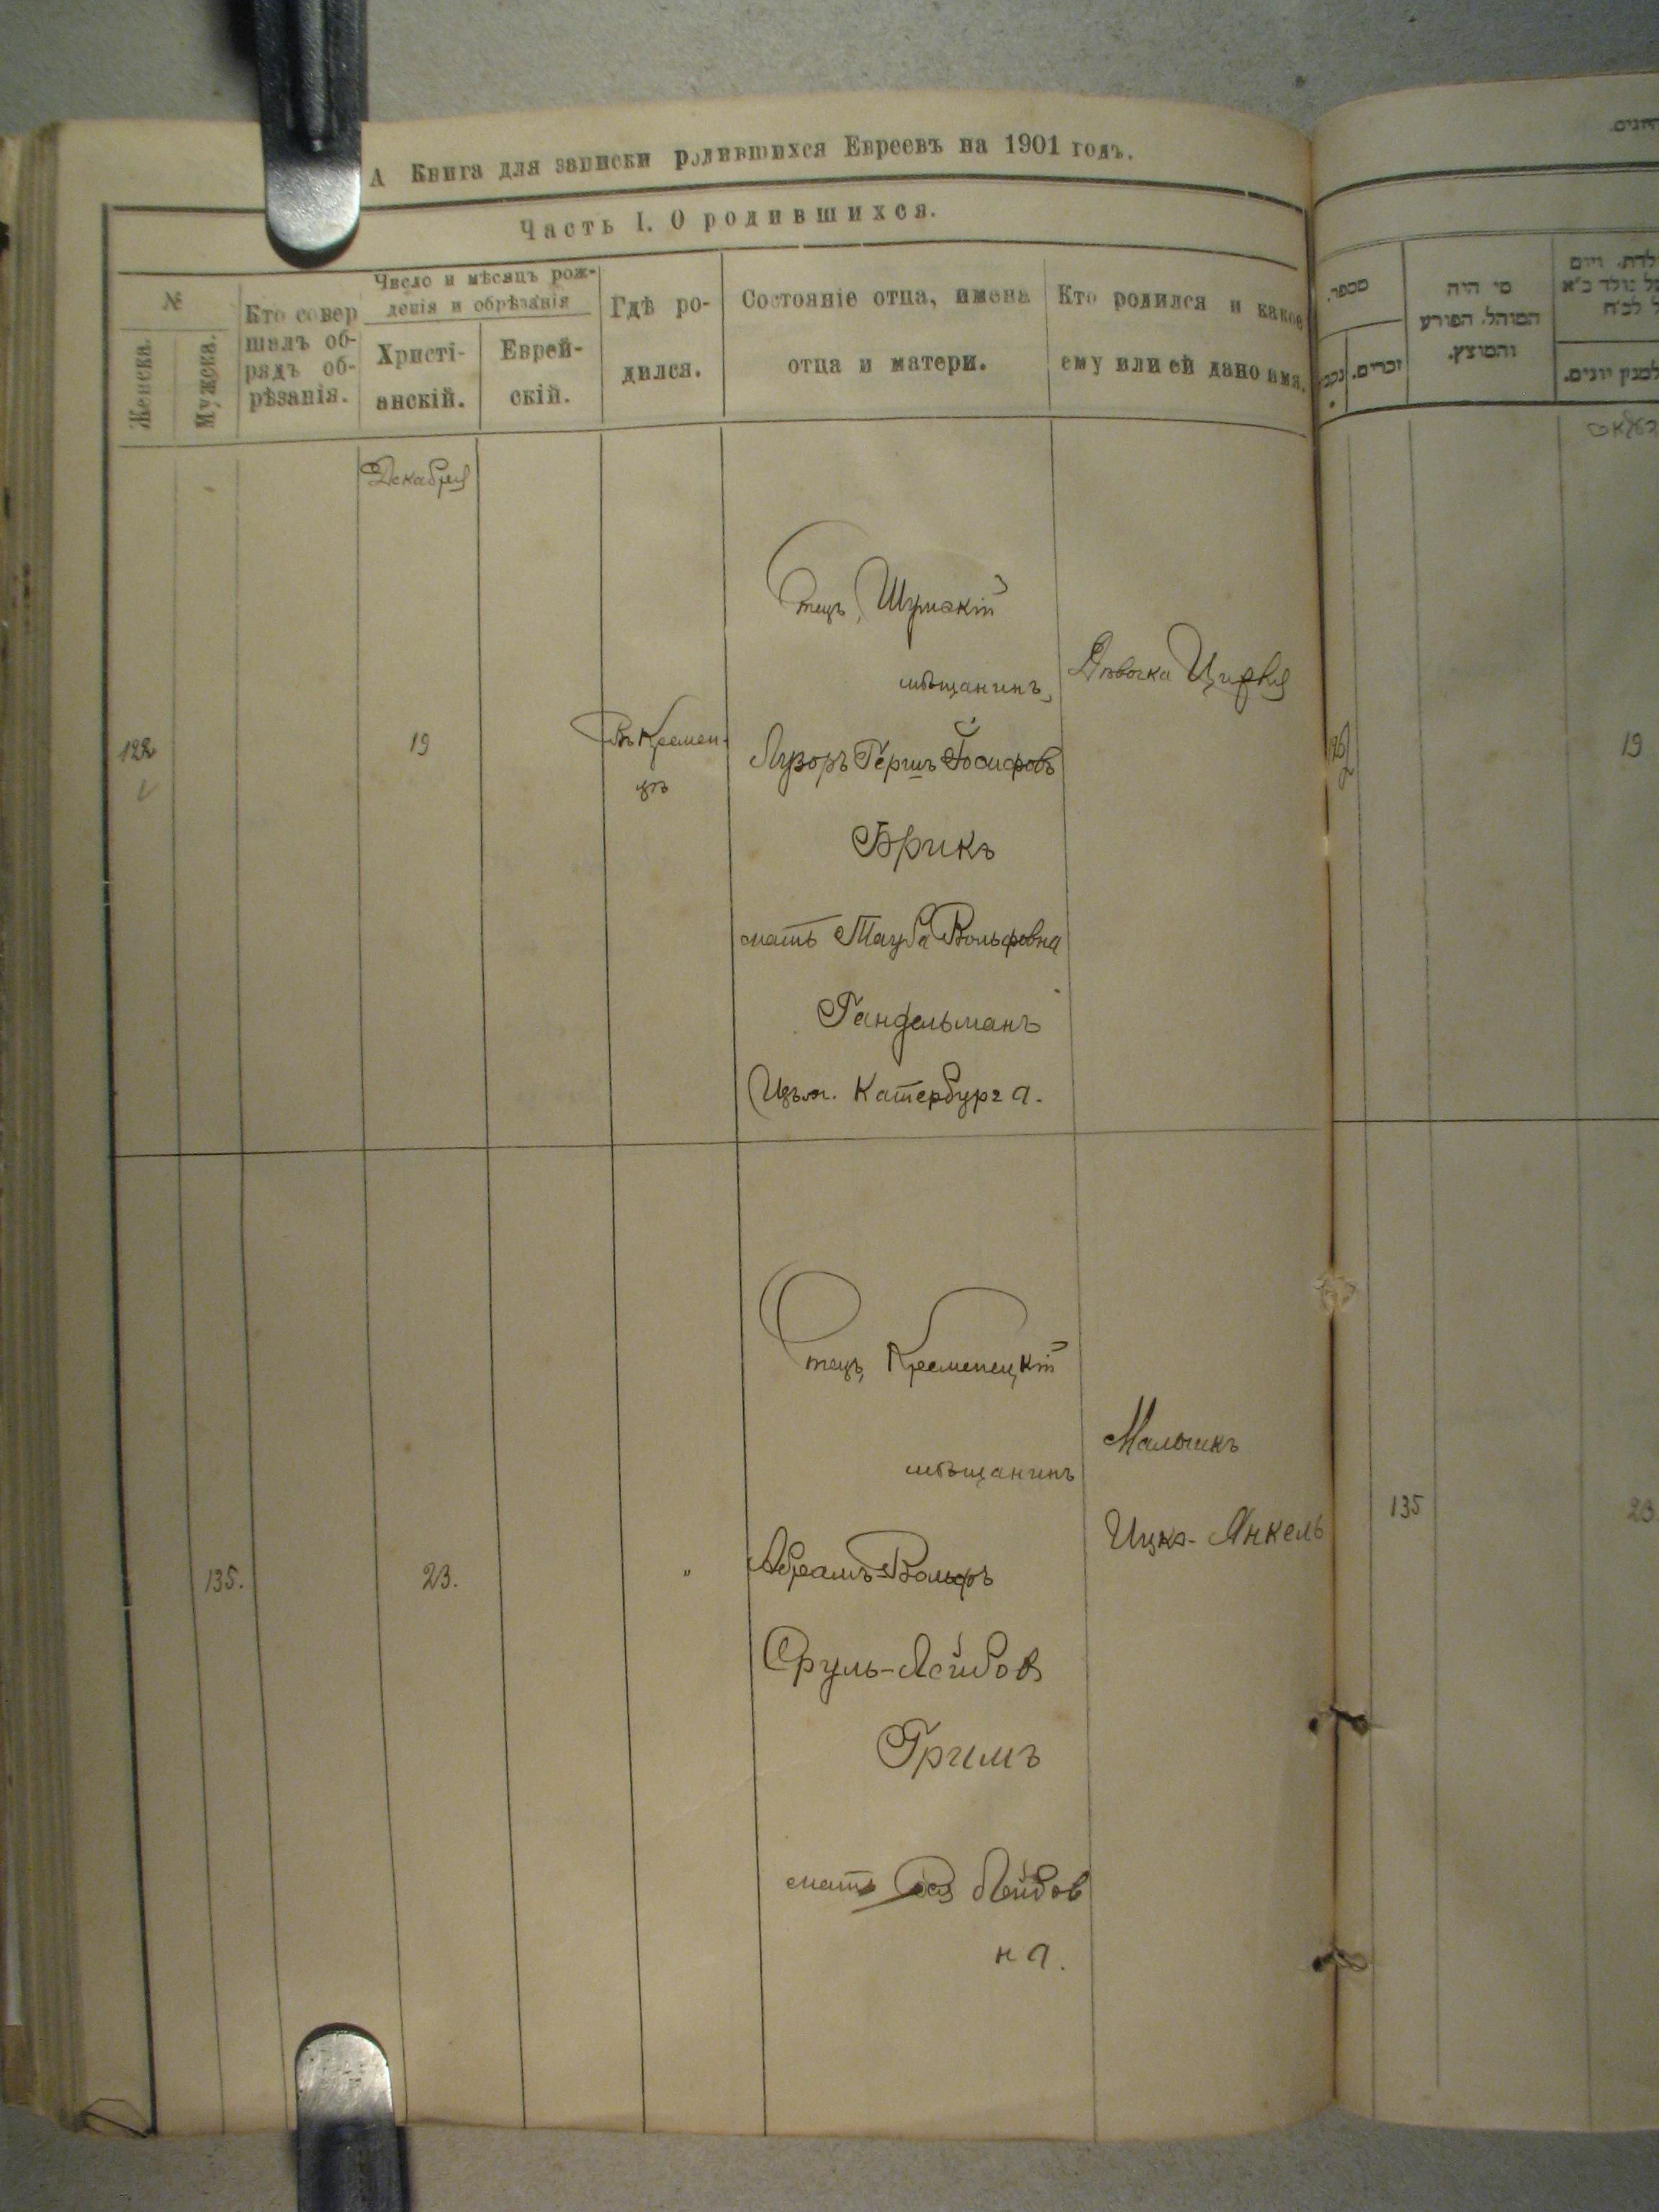 А Книга для записки родившихся Евреевъ на 1901 годъ.
Часть I. О родившихся.
№
Женска.
Мужска.
Кто совер
шалъ об-
рядъ об-
рѣзанія.
Число и мѣсяцъ рож-
денія и обрѣзанія
Христі-
анскій.
Еврей-
скій.
Гдѣ ро-
дился.
Состояніе отца, имена
отца и матери.
Кто родился и какое
ему или ей дано имя.
Декабря
122
19
Въ Кремен-
цѣ
Отецъ, Шумскій
мѣщанинъ,
Лузоръ Гершъ Іосифовъ
Брикъ
мать Тауба Вольфовна
Гандельманъ
Изъ м. Катербурга.
Дѣвочка Цирля
135.
23.
"
Отецъ, Кременецкій
мѣщанинъ
Абрамъ-Вольфъ
Сруль-Лейбов
Гримъ
мать Лейбов
на.
Мальчикъ
Ицко-Янкель
מספר.
זכרים.
מי היה
המוהל. הפורע
והמוצץ.
למנין יונים.
19
135
23